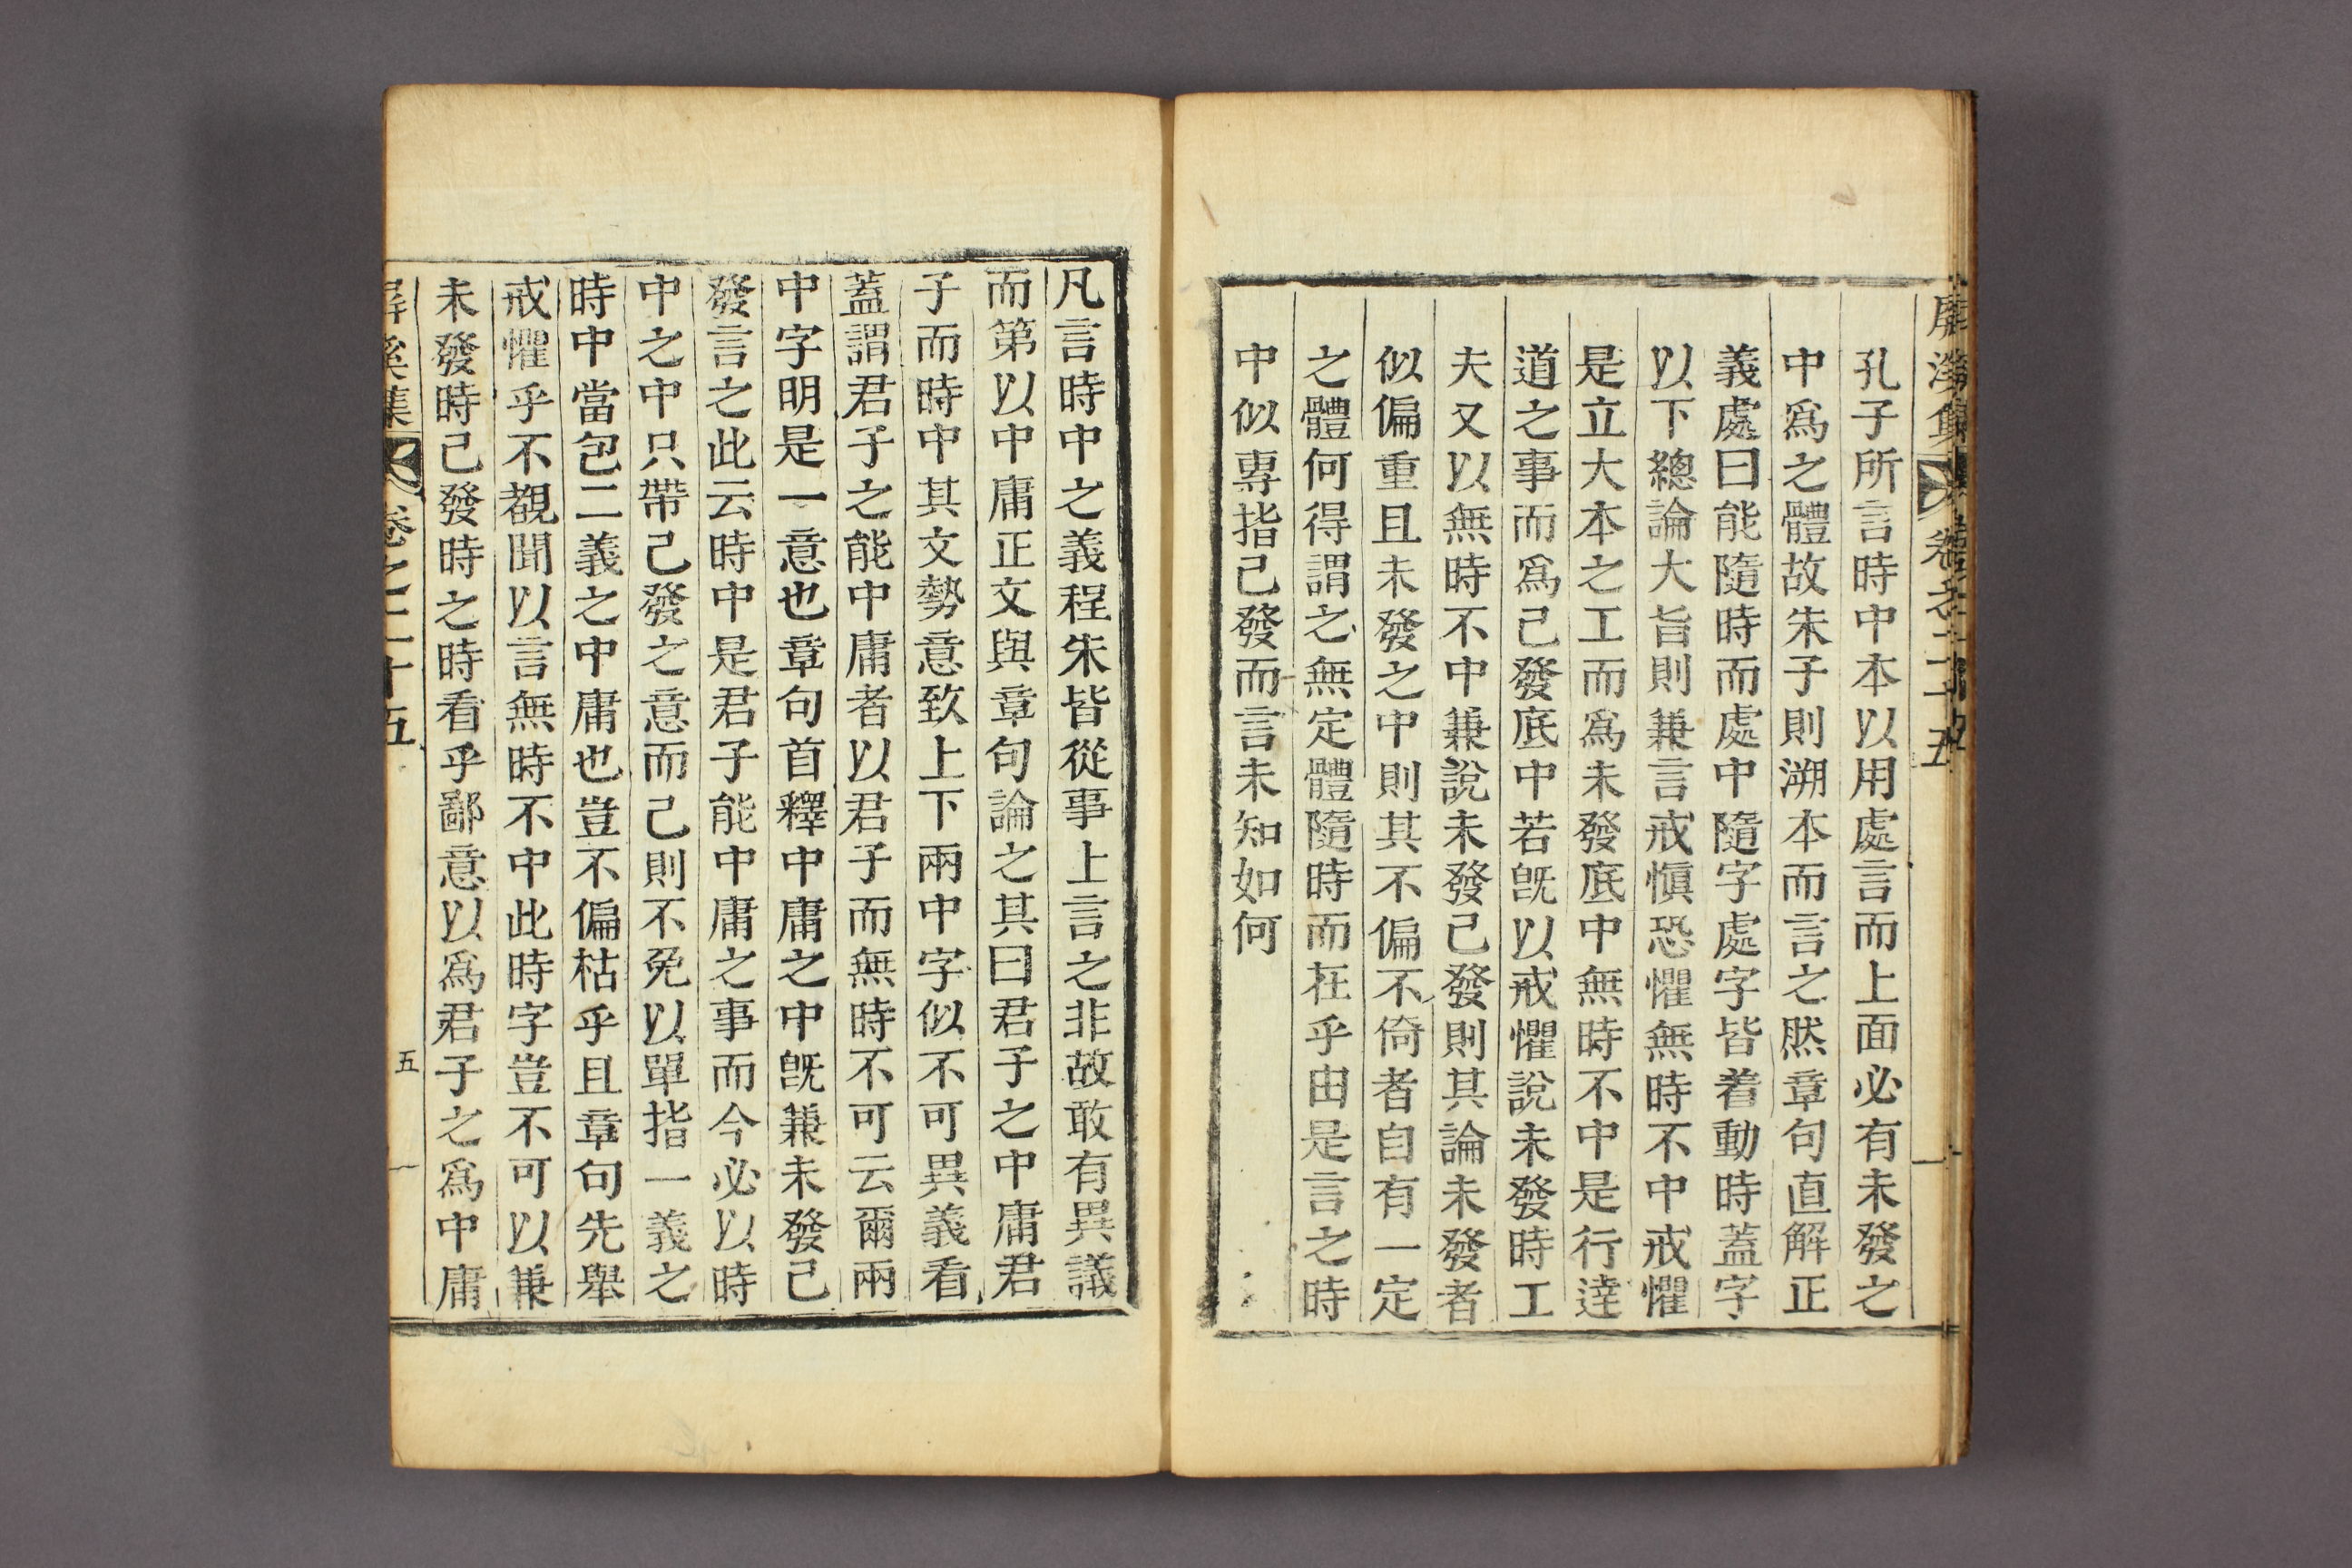 孔子所言時中本以用處言而上面必有未發之
中爲之體故朱子則溯本而言之然章句直解正
義處曰能隨時而處中隨字處字皆着動時蓋字
以下總論大旨則兼言戒愼恐懼無時不中戒懼
是立大本之工而爲未發底中無時不中是行達
道之事而爲已發底中若旣以戒懼說未發時工
夫又以無時不中兼說未發已發則其論未發者
似偏重且未發之中則其不偏不倚者自有一定
之體何得謂之無定體隨時而在乎由是言之時
中似專指已發而言未知如何
凡言時中之義程朱皆從事上言之非故敢有異議
而第以中庸正文與章句論之其曰君子之中庸君
子而時中其文勢意致上下兩中字似不可異義看
蓋謂君子之能中庸者以君子而無時不可云爾兩
中字明是一意也章句首釋中庸之中旣兼未發已
發言之此云時中是君子能中庸之事而今必以時
中之中只帶已發之意而已則不免以單指一義之
時中當包二義之中庸也豈不偏枯乎且章句先舉
戒懼乎不覩聞以言無時不中此時字豈不可以兼
未發時已發時之時看乎鄙意以爲君子之爲中庸
屛溪集 卷之二十五 五